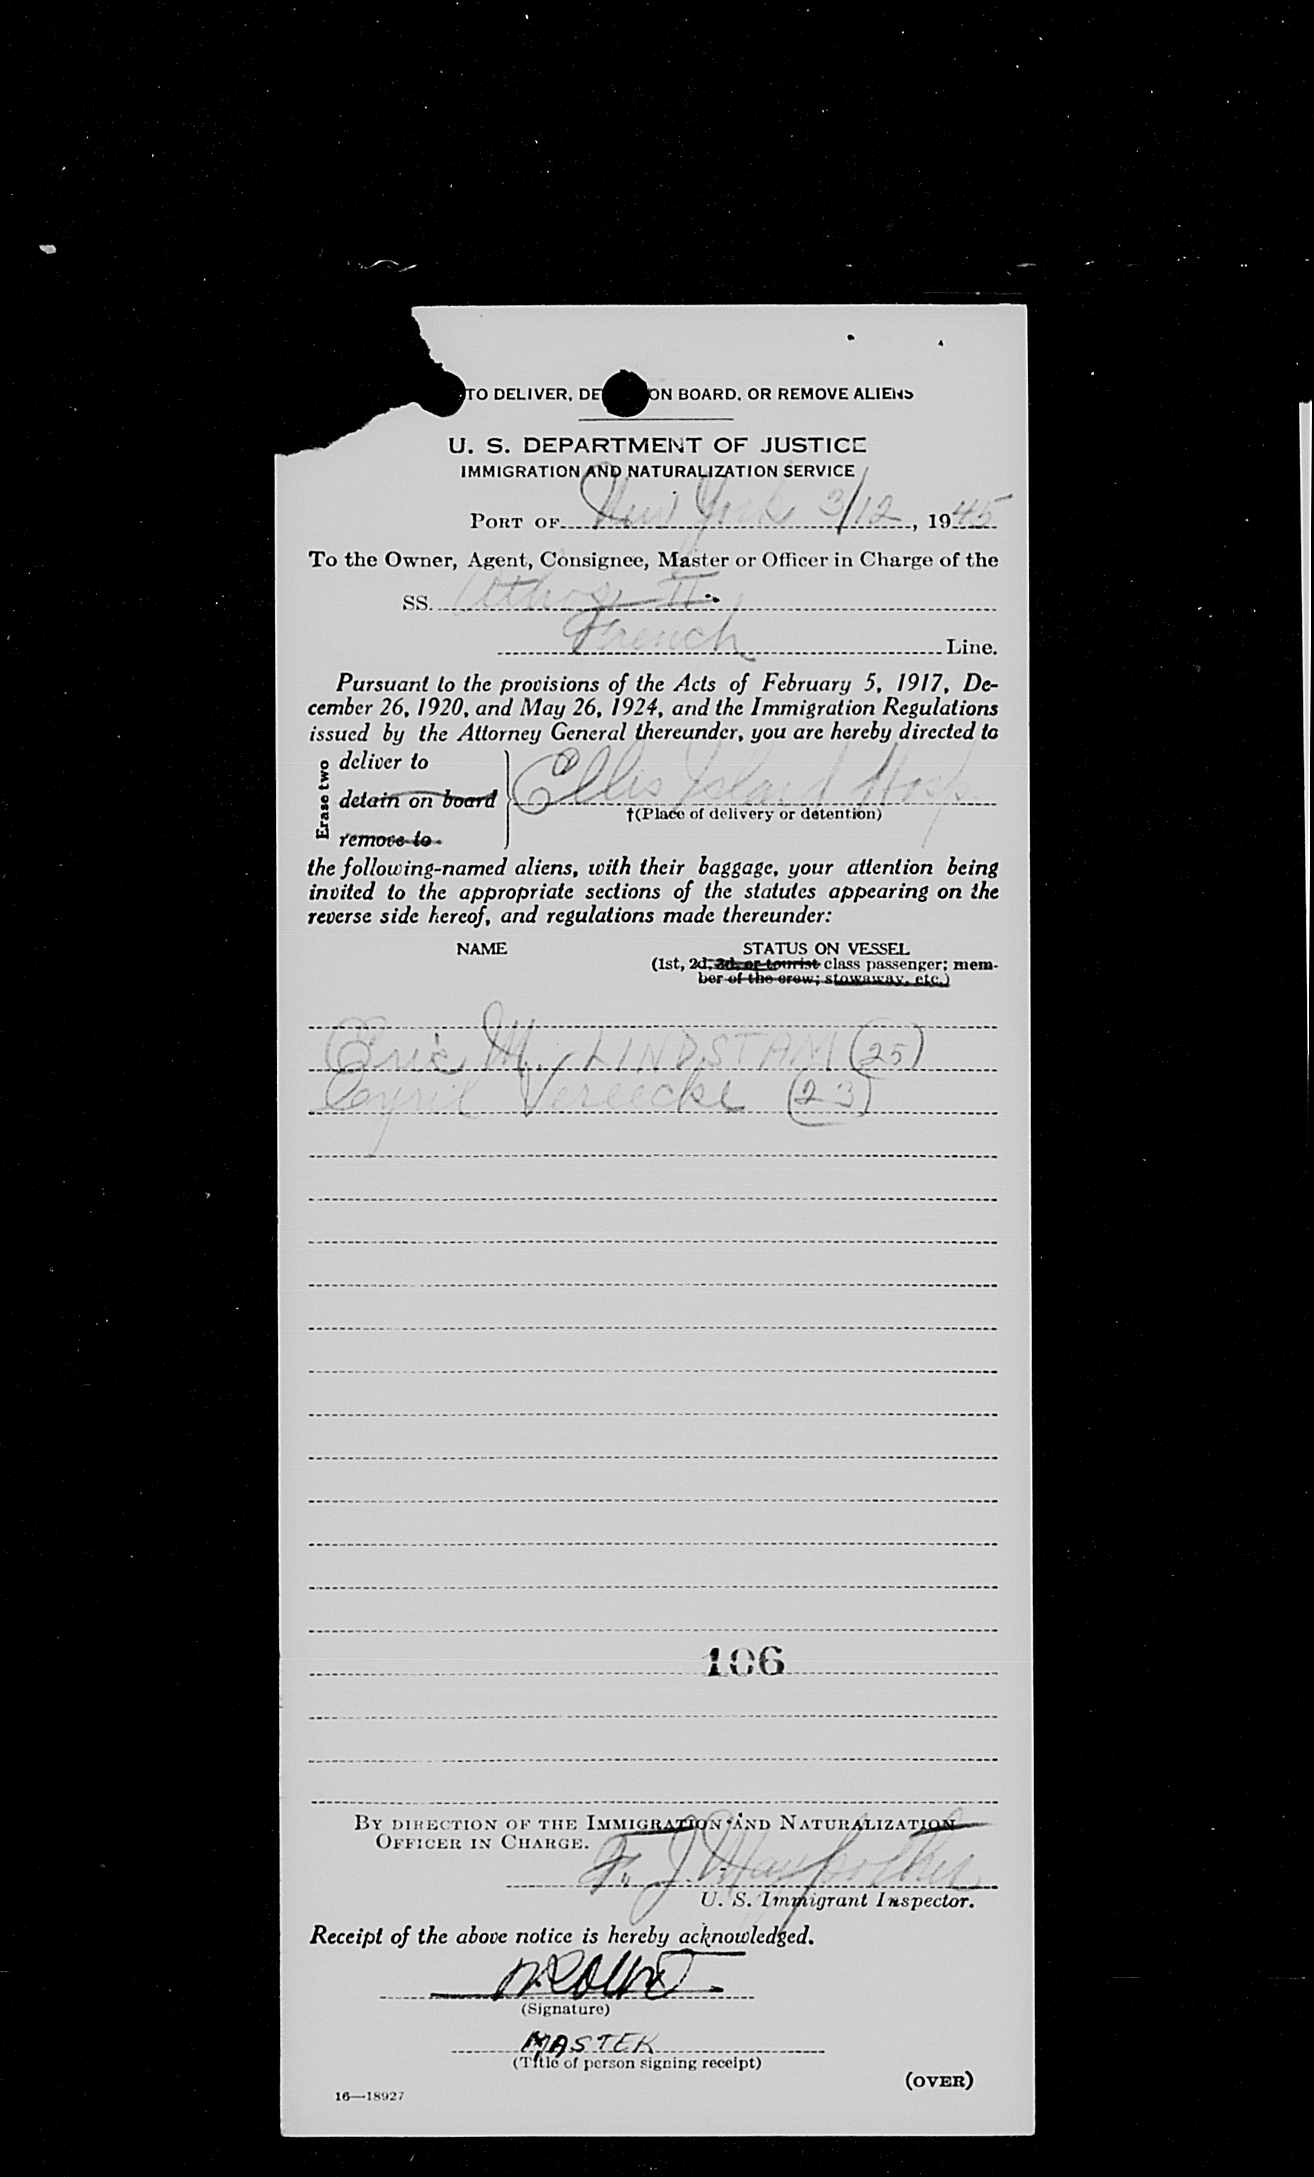 TO DELIVER, DE ON BOARD, OR REMOVE ALIENS
U. S. DEPARTMENT OF JUSTICE
IMMIGRATION AND NATURALIZATION SERVICE
PORT OF New York 3/12, 1945
To the Owner, Agent, Consignee, Master or Officer in Charge of the
SS. Athos II.
French Line.
Pursuant to the provisions of the Acts of February 5, 1917, De-
cember 26, 1920, and May 26, 1924, and the Immigration Regulations
issued by the Attorney General thereunder, you are hereby directed to
Erase two
deliver to
detain on board Ellis Island Hosp
†(Place of delivery or detention)
remove to
the following-named aliens, with their baggage, your attention being
invited to the appropriate sections of the statutes appearing on the
reverse side hereof, and regulations made thereunder:
NAME STATUS ON VESSEL
(1st, 2d, 3d, or tourist class passenger; mem-
ber of the crew; stowaway, etc.)
Eric M. LINDSTAM (25)
Cyril Vereecke (23)
106
BY DIRECTION OF THE IMMIGRATION AND NATURALIZATION
OFFICER IN CHARGE.
F. J.
U. S. Immigrant Inspector.
Receipt of the above notice is hereby acknowledged.
(Signature)
MASTER
(Title of person signing receipt)
(OVER)
16—18927